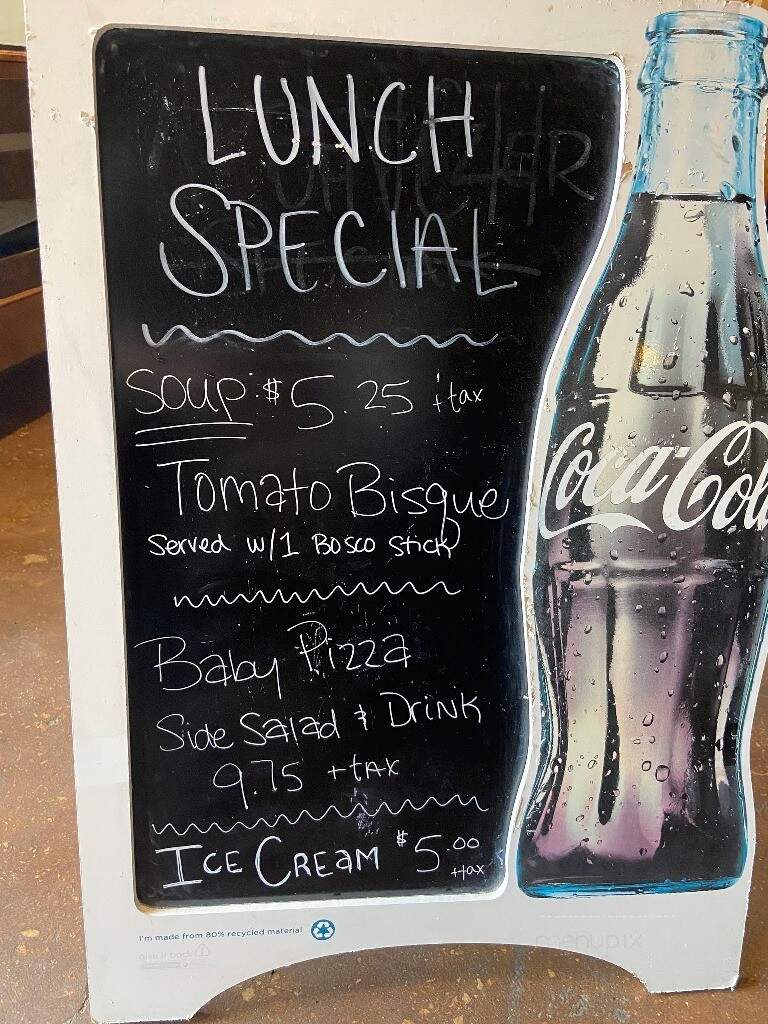 LUNCH
SPECIAL
SOUP: $5.25 +tax
Tomato Bisque
Served w/1 Bosco Stick
Baby Pizza
Side Salad & Drink
9.75 +tax
ICE CREAM $5.00
+tax
Coca-Col
I'm made from 80% recycled material
give it back
menupix